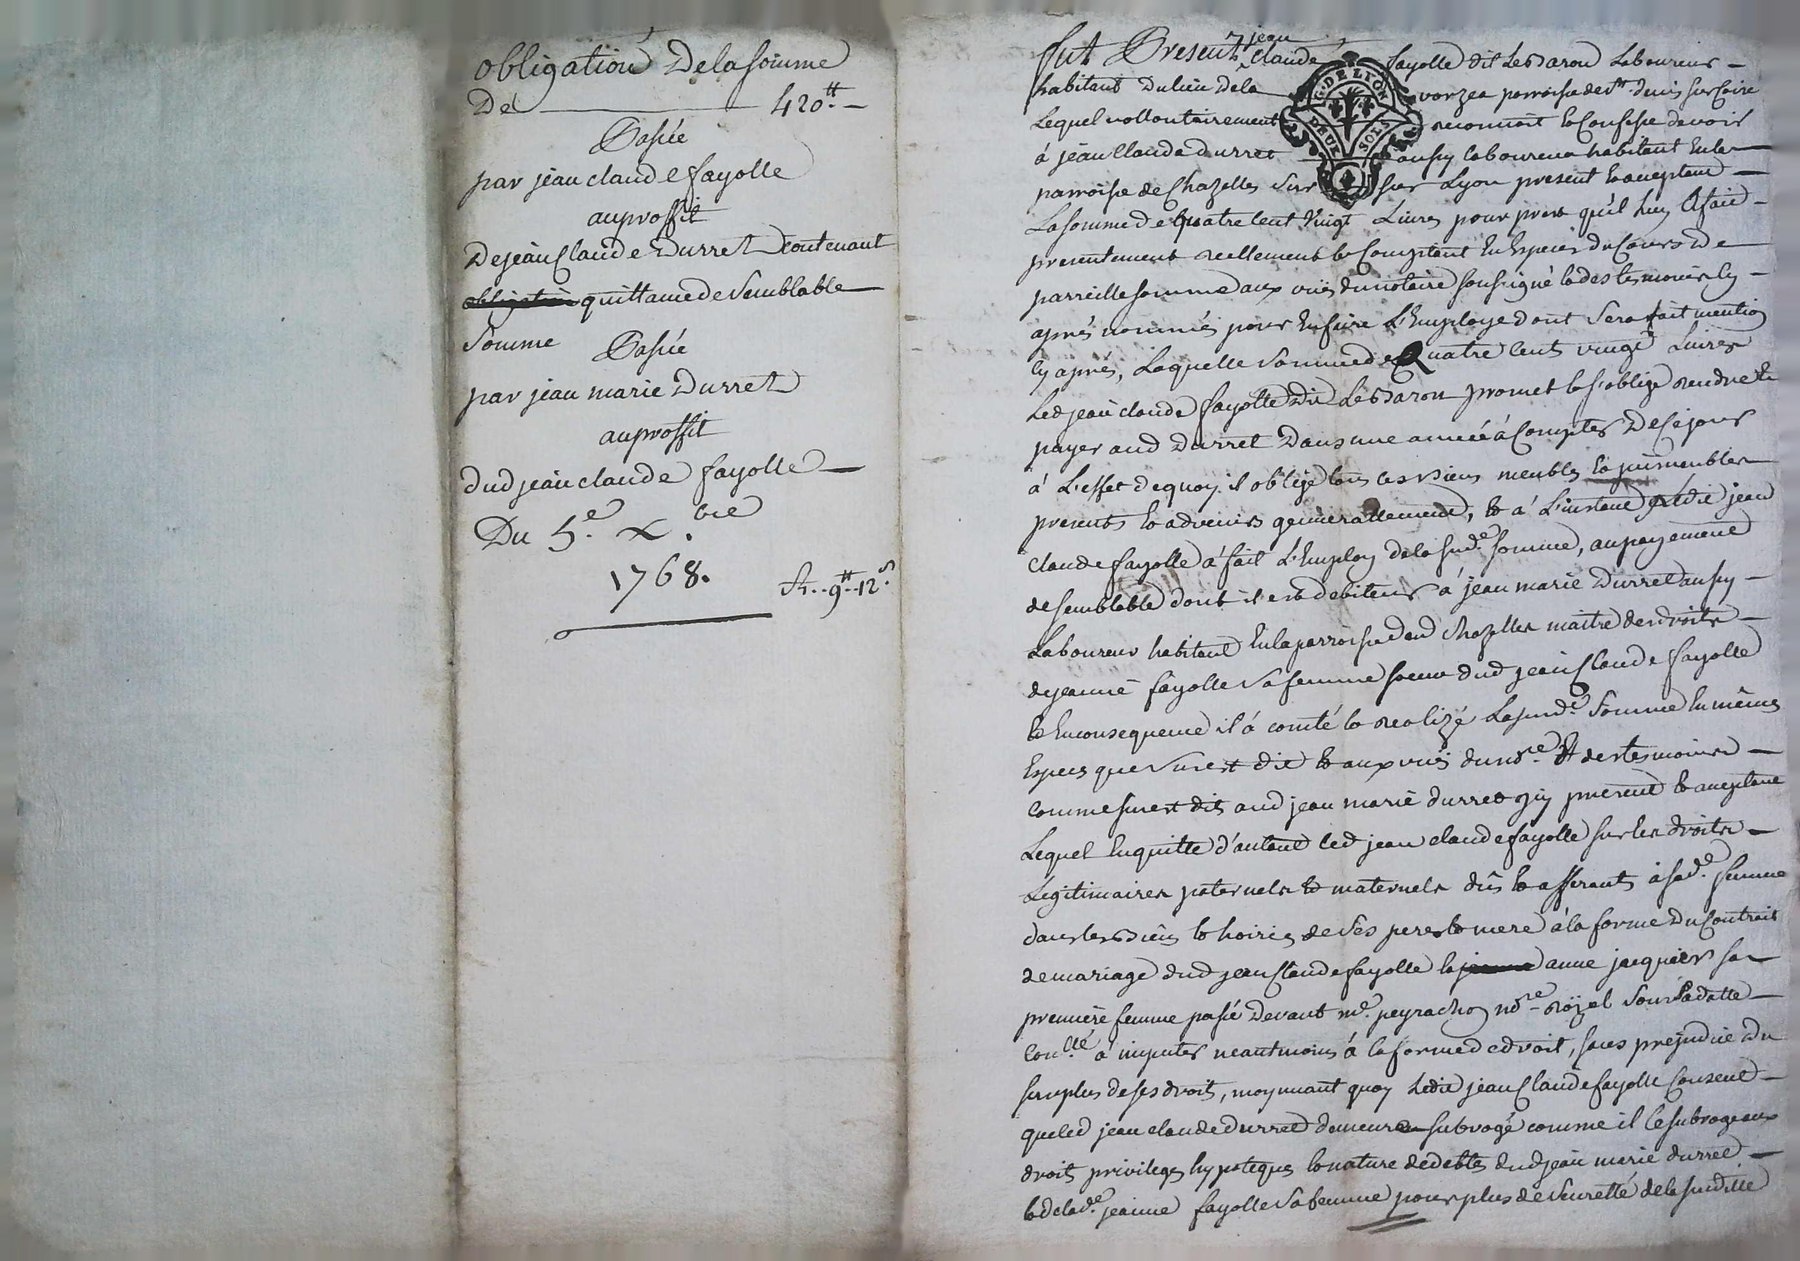 obligation De la somme
De 420.tt
Passée
par jean claude fayolle
au proffit
De jean Claude Durret Contenant
obligation quittance de semblable
Somme
Passée
par jean marie Durret
au proffit
dud jean claude fayolle
Du 5.e X.bre
1768.
9.tt 12.s
fut Present, jean Claude fayolle dit Le Baron Laboureur
habitant Du lieu De la varzea parroisse de St. denis sur Coire
Lequel vollontairement reconnoit & Confesse devoir
à jean Claude durret aussy laboureur habitant En la
parroisse de Chazelles sur sur Lyon present & acceptant
G. DE LYON
DEUX SOLS
La somme de Quatre Cent Vingt Livres pour prest qu'il luy A fait
presentement reellement & Comptant En Especes du Cours De
parreille somme aux vües du notaire soussigné & des tesmoins Cy
aprés nommés pour En faire L'Employe dont Sera fait mention
Cy aprés, Laquelle Somme de Quatre Cents vingt Livres
Led jean claude fayolle Dit Le Baron promet & s'oblige rendre &
payer aud Durret Dans une année à Compter De Ce jour
à L'effet de quoy il oblige tous ses Biens meubles & immeubles
presents & advenirs generallement, & à L'instant Ledit jean
Claude fayolle à fait L'Employ de la sud.e somme, au payement
de semblable dont il est debiteur à jean marie Durret aussy
Laboureur habitant En la parroisse dud Chazelles maitre des droits
de jeanne fayolle Sa femme soeur dud jean Claude fayolle
& En consequence il à comté & realizé La sud.e Somme En mêmes
Especes que Sus est dit & aux vües dud n.re & des tesmoins
comme sus est dit aud jean marie durret icy present & acceptant
Lequel En quitte d'autant led jean claude fayolle sur les droits
Legitimaires paternels & maternels dûs & afferants à sad.e femme
dans les Biens & hoiries de Ses pere & mere à la forme Du Contrait
de mariage dud jean Claude fayolle & anne jacquier sa
première femme passé Devant m.e peyrachon n.re roÿal Sous Sa datte
à imputer neantmoins à la forme de droit, sans prejudice Du
surplus de ses droit, moyennant quoy Ledit jean Claude fayolle Consent
que led jean claude durret demeure subrogé comme il le subroge aux
droit privileges hypoteques & nature de debte dud jean marie durret
& de lad.e jeanne fayolle Sa femme pour plus de seuretté de la susditte